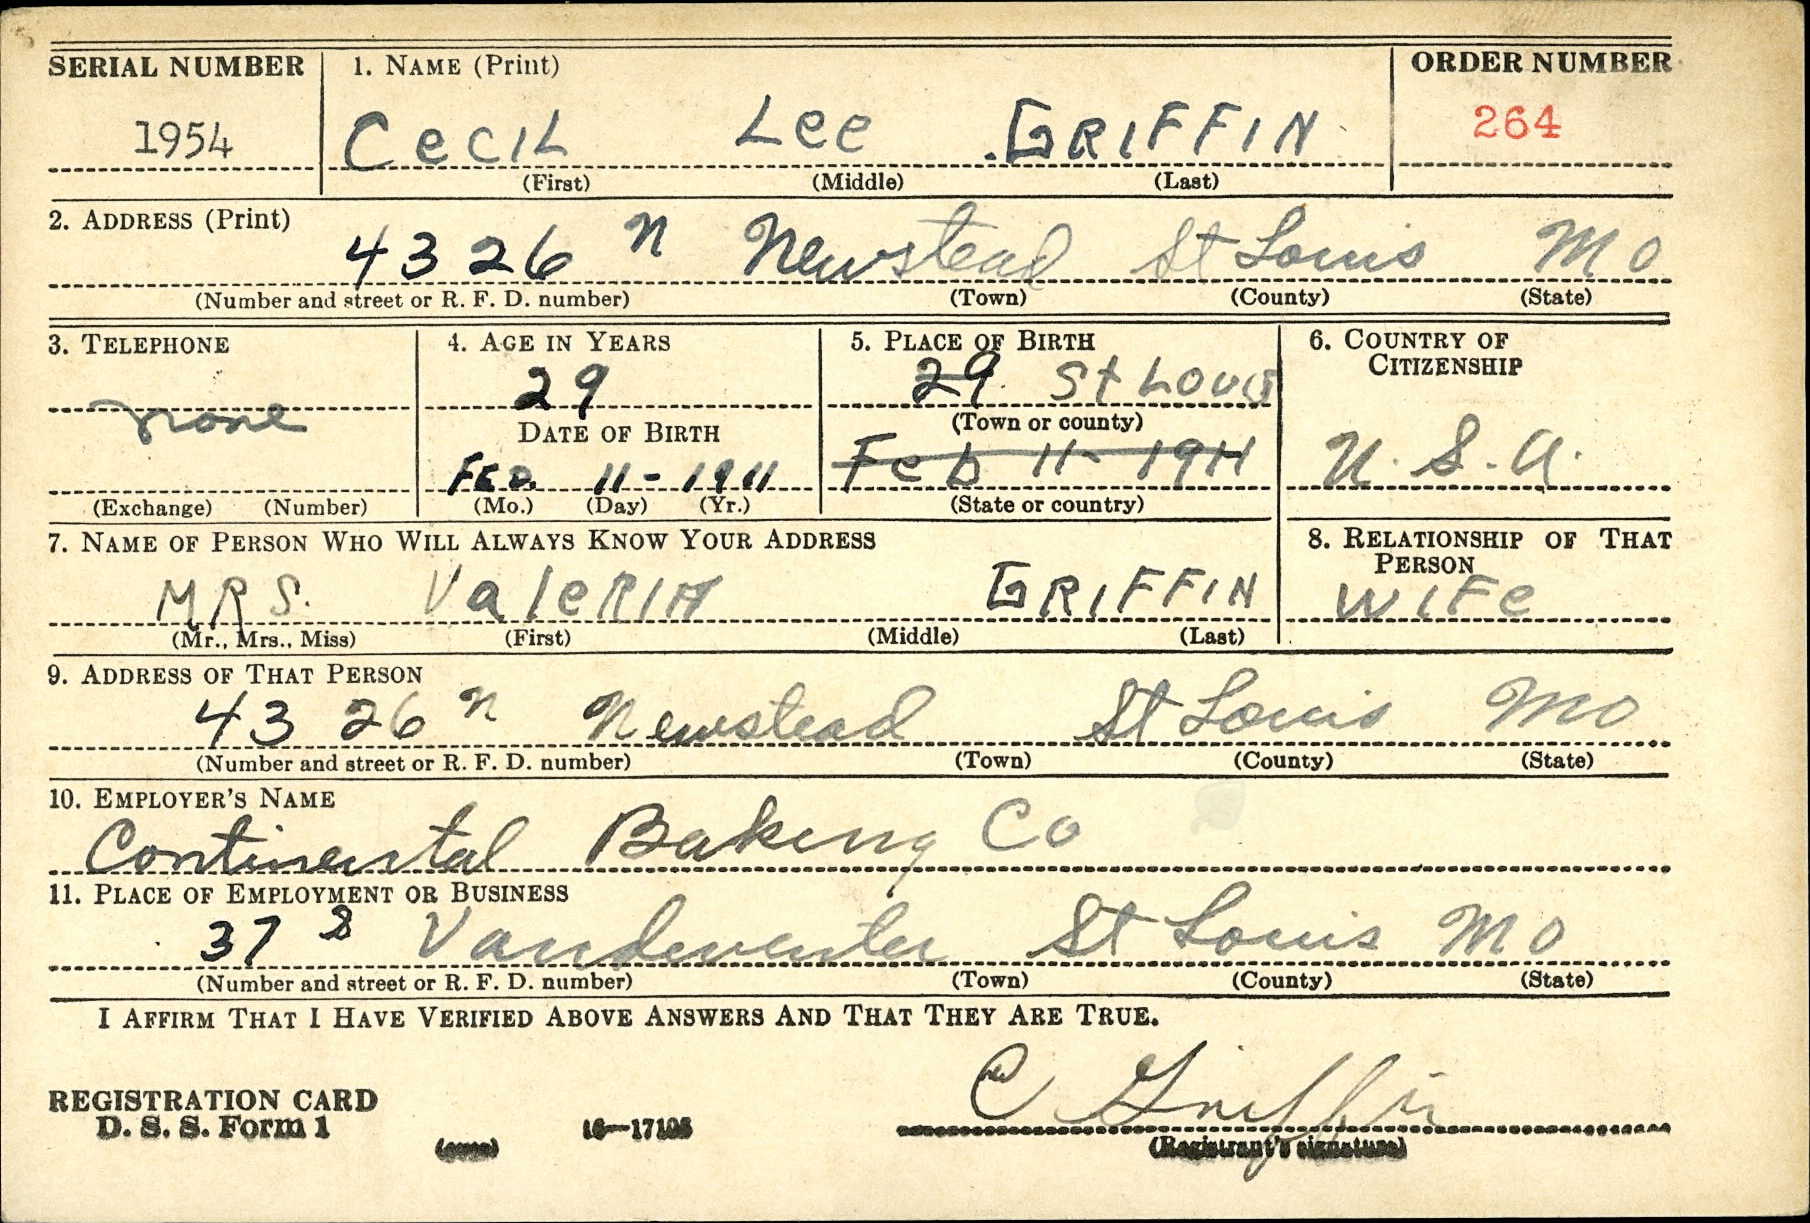 SERIAL NUMBER 1. NAME (Print) ORDER NUMBER
1954 CeCIL Lee GRIFFIN 264
(First) (Middle) (Last)
2. ADDRESS (Print)
4326 N Newstead St Louis Mo
(Number and street or R. F. D. number) (Town) (County) (State)
3. TELEPHONE 4. AGE IN YEARS 5. PLACE OF BIRTH 6. COUNTRY OF CITIZENSHIP
none 29 29 St Louis
DATE OF BIRTH (Town or county)
FEB. 11-1911 Feb 11-1911 U.S.A.
(Exchange) (Number) (Mo.) (Day) (Yr.) (State or country)
7. NAME OF PERSON WHO WILL ALWAYS KNOW YOUR ADDRESS 8. RELATIONSHIP OF THAT PERSON
MRS. ValeRIA GRIFFIN WIFe
(Mr., Mrs., Miss) (First) (Middle) (Last)
9. ADDRESS OF THAT PERSON
4326 N Newstead St Louis Mo
(Number and street or R. F. D. number) (Town) (County) (State)
10. EMPLOYER'S NAME
Continental Baking Co
11. PLACE OF EMPLOYMENT OR BUSINESS
37 S Vandeventer St Louis Mo
(Number and street or R. F. D. number) (Town) (County) (State)
I AFFIRM THAT I HAVE VERIFIED ABOVE ANSWERS AND THAT THEY ARE TRUE.
C Griffin
REGISTRATION CARD
D. S. S. Form 1 (over) 16—17105 (Registrant's signature)